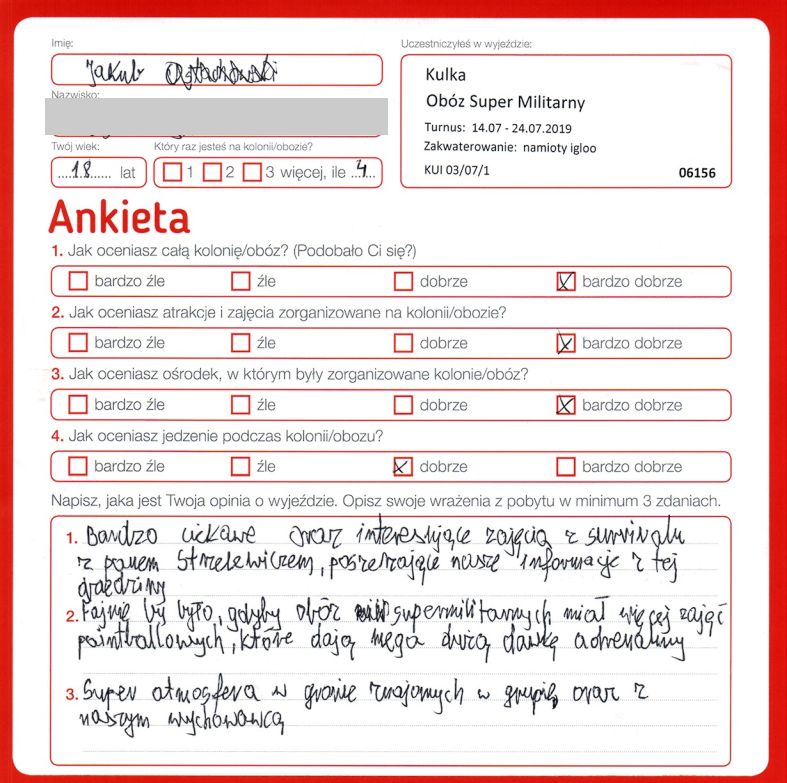 Imię:
Jakub
Nazwisko:
Uczestniczyłeś w wyjeździe:
Kulka
Obóz Super Militarny
Turnus: 14.07 - 24.07.2019
Zakwaterowanie: namioty igloo
KUI 03/07/1 06156
Twój wiek: Który raz jesteś na kolonii/obozie?
....18...... lat 1 2 3 więcej, ile ..4..
Ankieta
1. Jak oceniasz całą kolonię/obóz? (Podobało Ci się?)
bardzo źle źle dobrze bardzo dobrze
2. Jak oceniasz atrakcje i zajęcia zorganizowane na kolonii/obozie?
bardzo źle źle dobrze bardzo dobrze
3. Jak oceniasz ośrodek, w którym były zorganizowane kolonie/obóz?
bardzo źle źle dobrze bardzo dobrze
4. Jak oceniasz jedzenie podczas kolonii/obozu?
bardzo źle źle dobrze bardzo dobrze
Napisz, jaka jest Twoja opinia o wyjeździe. Opisz swoje wrażenia z pobytu w minimum 3 zdaniach.
1. Bardzo ciekawe oraz interesujące zajęcia z survivalu
z panem Strzelewiczem, poszerzające nasze informacje z tej
dziedziny
2. Fajnie by było, gdyby obóz supermilitarnych miał więcej zajęć
paintballowych, które dają mega dużą dawkę adrenaliny
3. Super atmosfera w gronie znajomych w grupie, oraz z
naszym wychowawcą